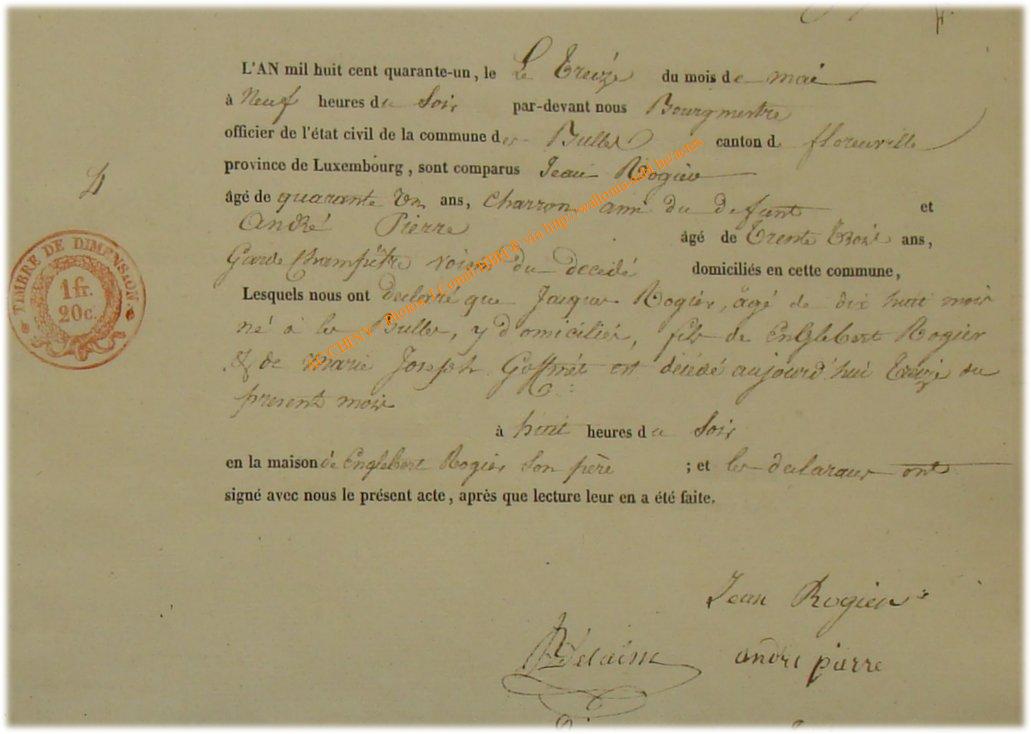 L'AN mil huit cent quarante-un, le Le Treize du mois de mai
à Neuf heures du Soir par-devant nous Bourgmestre
officier de l'état civil de la commune des Bulles canton d. florenville
province de Luxembourg, sont comparus Jean Rogier
4
âgé de quarante un ans, charron, ami du defunt et
André Pierre âgé de Trente Trois ans,
Garde Champêtre voisin du decidé domiciliés en cette commune,
TIMBRE DE DIMENSION
1 fr.
20 c.
Lesquels nous ont declaré que Jacques Rogier, âgé de dix huit mois
né à les Bulles, y domicilié, fils de Englebert Rogier
& de Marie Joseph Goffinet est décédé aujourd'hui Treize du
present mois
à huit heures du Soir
en la maison de Englebert Rogier son père ; et les declarans ont
signé avec nous le présent acte, après que lecture leur en a été faite.
Jean Rogier
andre pierre